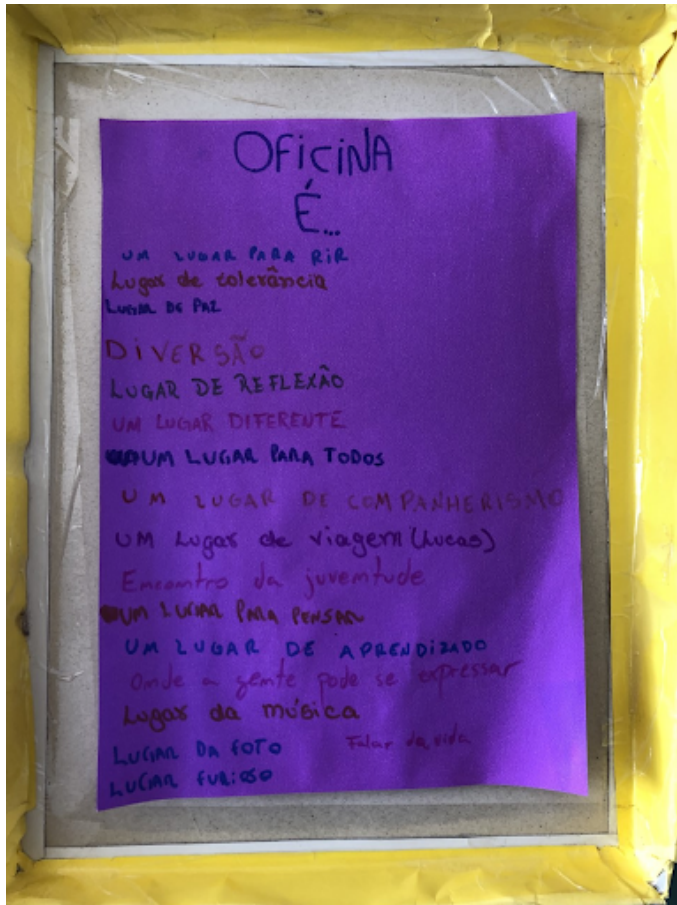 OFICINA
É...
UM LUGAR PARA RIR
Lugar de tolerância
LUGAR DE PAZ
DIVERSÃO
LUGAR DE REFLEXÃO
UM LUGAR DIFERENTE
UM LUGAR PARA TODOS
UM LUGAR DE COMPANHERISMO
UM Lugar de viagem (Lucas)
Encontro da juventude
UM LUGAR PARA PENSAR
UM LUGAR DE APRENDIZADO
Onde a gente pode se expressar
Lugar da música
LUGAR DA FOTO Falar da vida
LUGAR FURIOSO